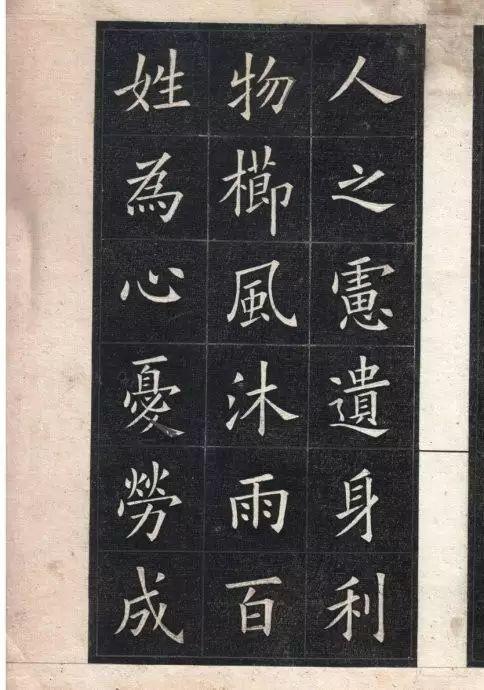 人之慮遺身利
物櫛風沐雨百
姓為心憂勞成